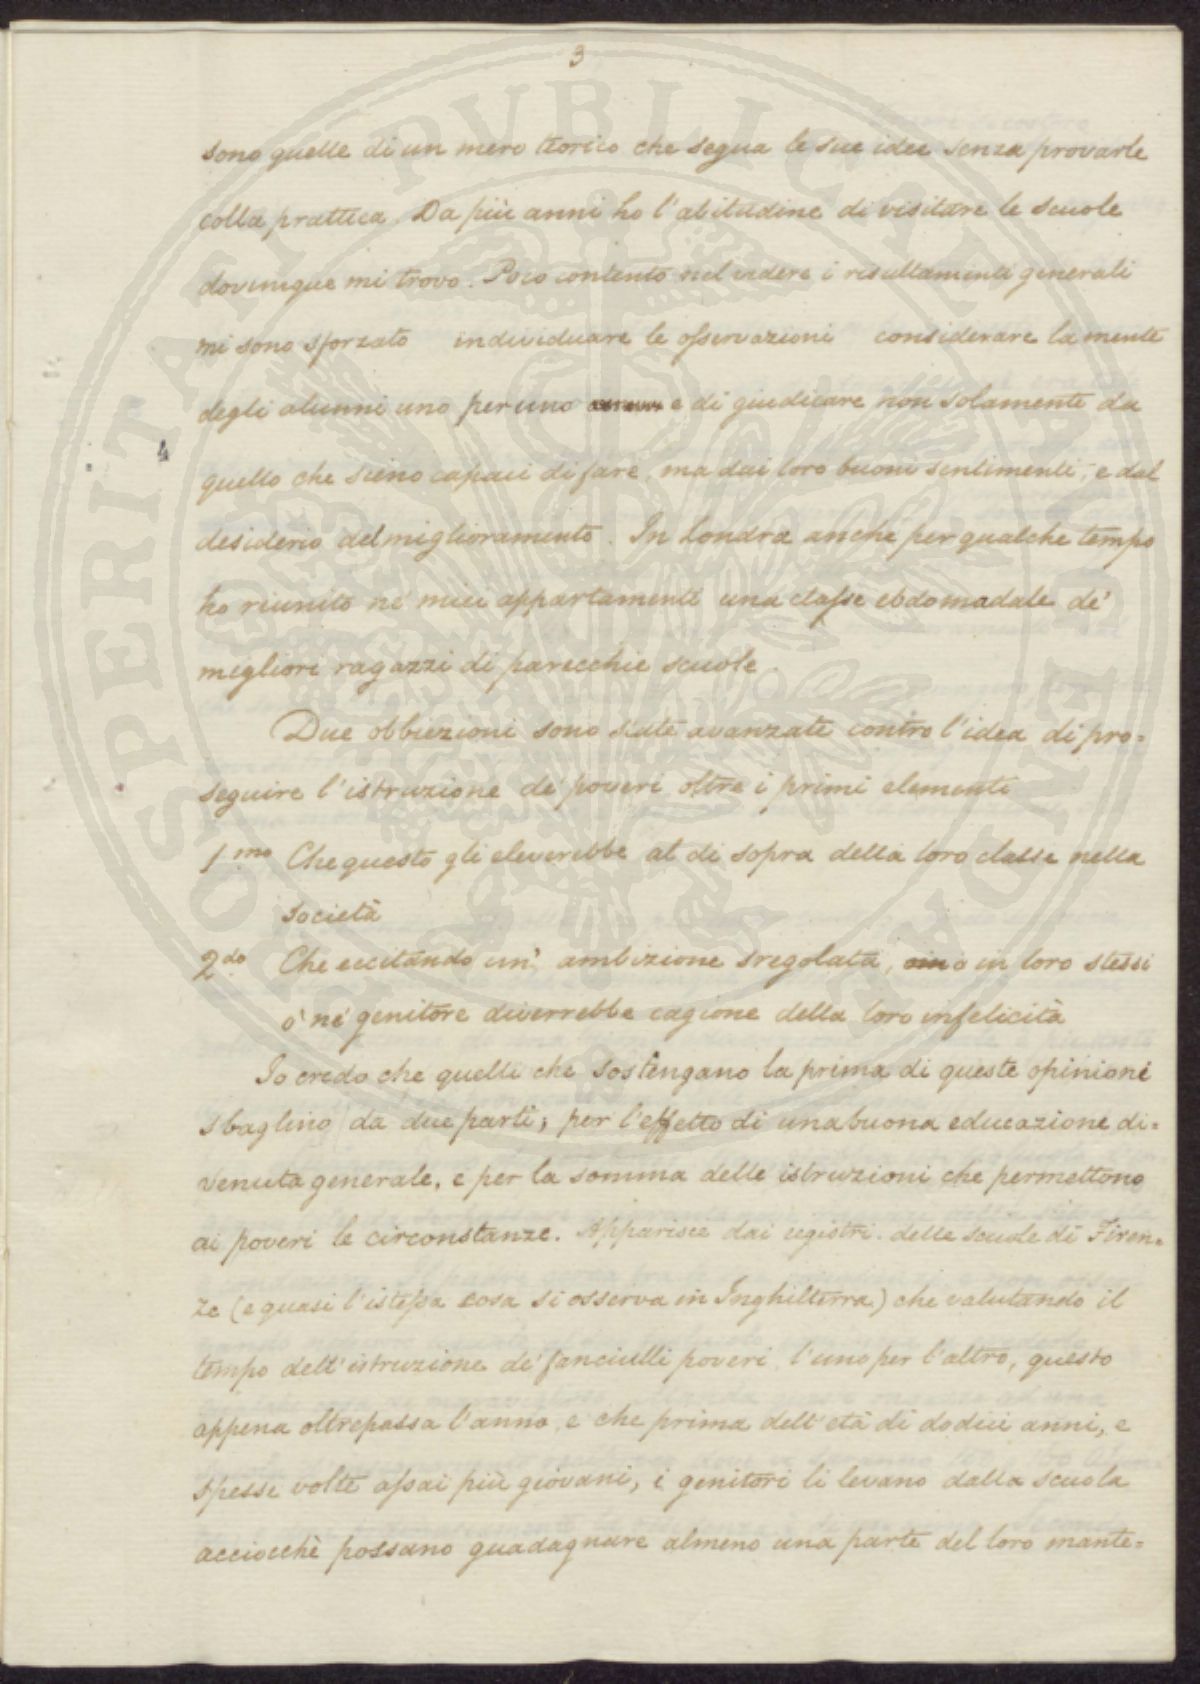 3
sono quelle di un mero teorico che segua le sue idee senza provarle
colla prattica. Da più anni ho l'abitudine di visitare le scuole
dovunque mi trovo. Poco contento nel vedere i risultamenti generali
mi sono sforzato individuare le osservazioni considerare la mente
degli alunni uno per uno e di giudicare non solamente da
4
quello che sieno capaci di fare, ma dai loro buoni sentimenti, e dal
desiderio del miglioramento. In Londra anche per qualche tempo
ho riunito ne' miei appartamenti una classe ebdomadale de'
migliori ragazzi di parecchie scuole.
Due obbiezioni sono state avanzate contro l'idea di pro=
seguire l'istruzione de' poveri oltre i primi elementi
1.mo Che questo gli eleverebbe al di sopra della loro classe nella
società
2.do Che eccitando un' ambizione sregolata, o in loro stessi
o ne' genitore diverrebbe cagione della loro infelicità
Io credo che quelli che sostengano la prima di queste opinioni
sbaglino da due parti; per l'effetto di una buona educazione di=
venuta generale, e per la somma delle istruzioni che permettono
ai poveri le circonstanze. Apparisce dai registri delle scuole di Firen=
ze (e quasi l'istessa cosa si osserva in Inghilterra) che valutando il
tempo dell'istruzione de' fanciulli poveri l'uno per l'altro, questo
appena oltrepassa l'anno, e che prima dell'età di dodici anni, e
spesse volte assai più giovani, i genitori li levano dalla scuola
acciocchè possano guadagnare almeno una parte del loro mante=
PROSPERITATI PVBLICAE AVGENDAE